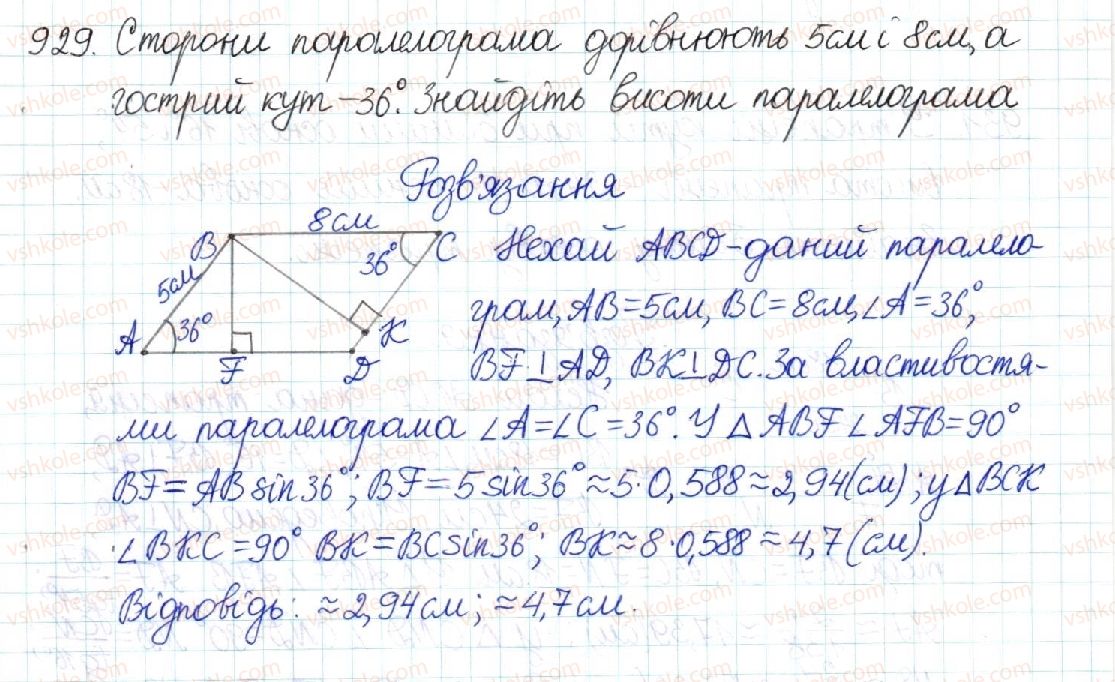 929. Сторони паралелограма дорівнюють 5см і 8см, а
гострий кут – 36°. Знайдіть висоти паралелограма
Розв'язання
8см
B
C
5см
36°
A
36°
K
F
D
Нехай ABCD – даний паралело-
грам, AB = 5см, BC = 8см, ∠A = 36°,
BF ⊥ AD, BK ⊥ DC. За властивостя-
ми паралелограма ∠A = ∠C = 36°. У △ABF ∠AFB = 90°
BF = AB sin 36°; BF = 5 sin 36° ≈ 5·0,588 ≈ 2,94(см); у △BCK
∠BKC = 90° BK = BC sin 36°; BK ≈ 8·0,588 ≈ 4,7(см).
Відповідь: ≈ 2,94см; ≈ 4,7см.
vshkole.com